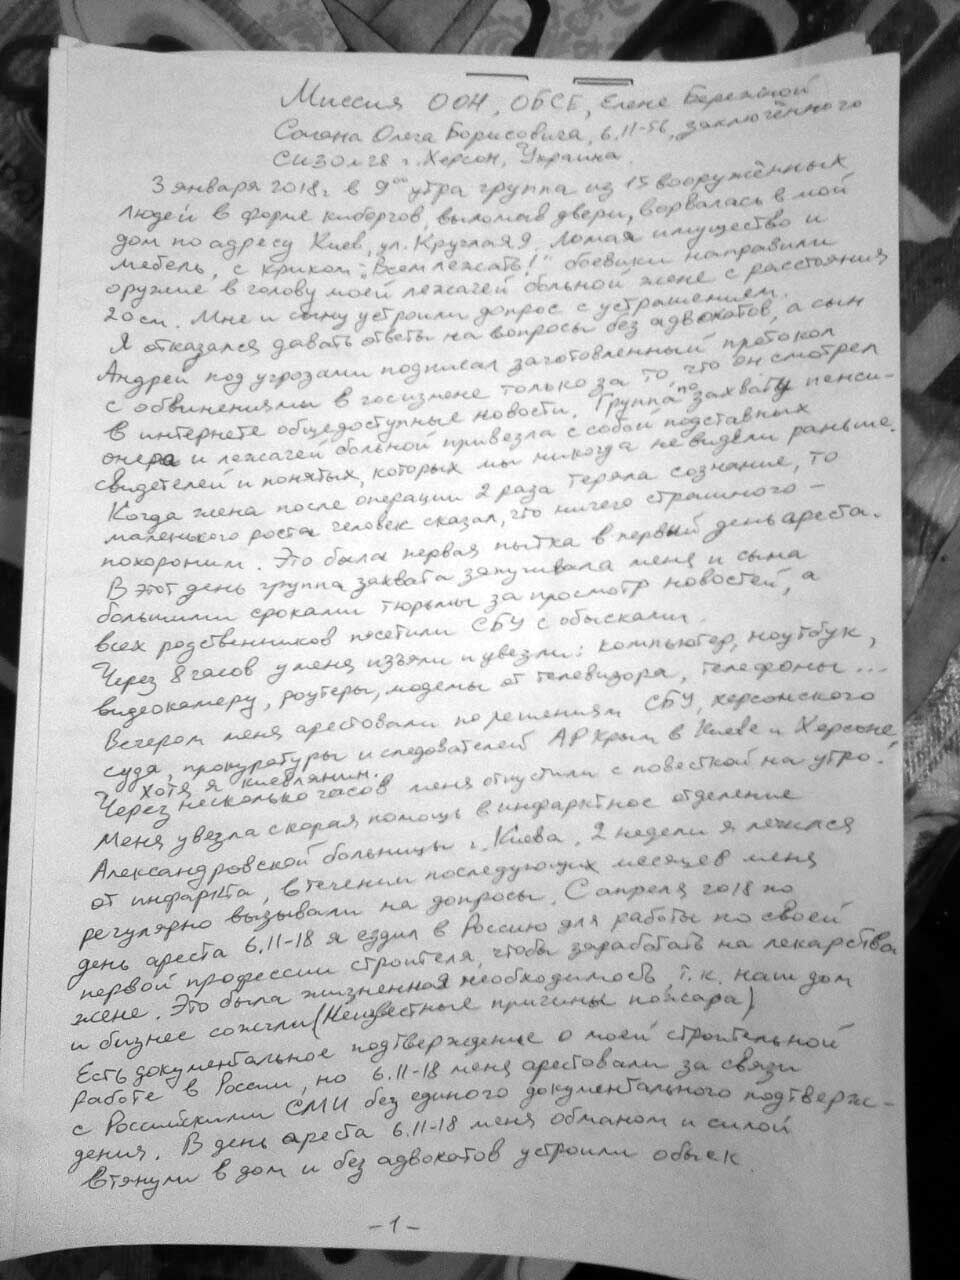 Миссия ООН, ОБСЕ, Елене Бережной
Сагана Олега Борисовича, 6.11-56, заключённого
СИЗО № 28 г. Херсон, Украина.
3 января 2018г в 9⁰⁰ утра группа из 15 вооружённых
людей в форме киборгов, выломав двери, ворвалась в мой
дом по адресу Киев, ул. Круглая 9. Ломая имущество и
мебель, с криком „Всем лежать!" боевики направили
оружие в голову моей лежачей больной жене с расстояния
20 см. Мне и сыну устроили допрос с устрашением.
Я отказался давать ответы на вопросы без адвокатов, а сын
Андрей под угрозами подписал заготовленный протокол
с обвинениями в госизмене только за то что он смотрел
в интернете общедоступные новости. Группа по захвату пенси-
онера и лежачей больной привезла с собой подставных
свидетелей и понятых, которых мы никогда не видели раньше.
Когда жена после операции 2 раза теряла сознание, то
маленького роста человек сказал, что ничего страшного –
похороним. Это была первая пытка в первый день ареста.
В этот день группа захвата запугивала меня и сына
большими сроками тюрьмы за просмотр новостей, а
всех родственников посетили СБУ с обысками.
Через 8 часов у меня изъяли и увезли: компьютер, ноутбук,
видеокамеру, роутеры, модемы от телевизора, телефоны...
Вечером меня арестовали по решениям СБУ, херсонского
суда, прокуратуры и следователей АР Крым в Киеве и Херсоне,
хотя я киевлянин.
Через несколько часов меня отпустили с повесткой на утро.
Меня увезла скорая помощь в инфарктное отделение
Александровской больницы г. Киева. 2 недели я лечился
от инфаркта, в течении последующих месяцев меня
регулярно вызывали на допросы. С апреля 2018 по
день ареста 6.11-18 я ездил в Россию для работы по своей
первой профессии строителя, чтобы заработать на лекарства
жене. Это была жизненная необходимость, т.к. наш дом
и бизнес сожгли (Неизвестные причины пожара)
Есть документальное подтверждение о моей строительной
работе в России, но 6.11-18 меня арестовали за связи
с Российскими СМИ без единого документального подтверж-
дения. В день ареста 6.11-18 меня обманом и силой
втянули в дом и без адвокатов устроили обыск.
-1-